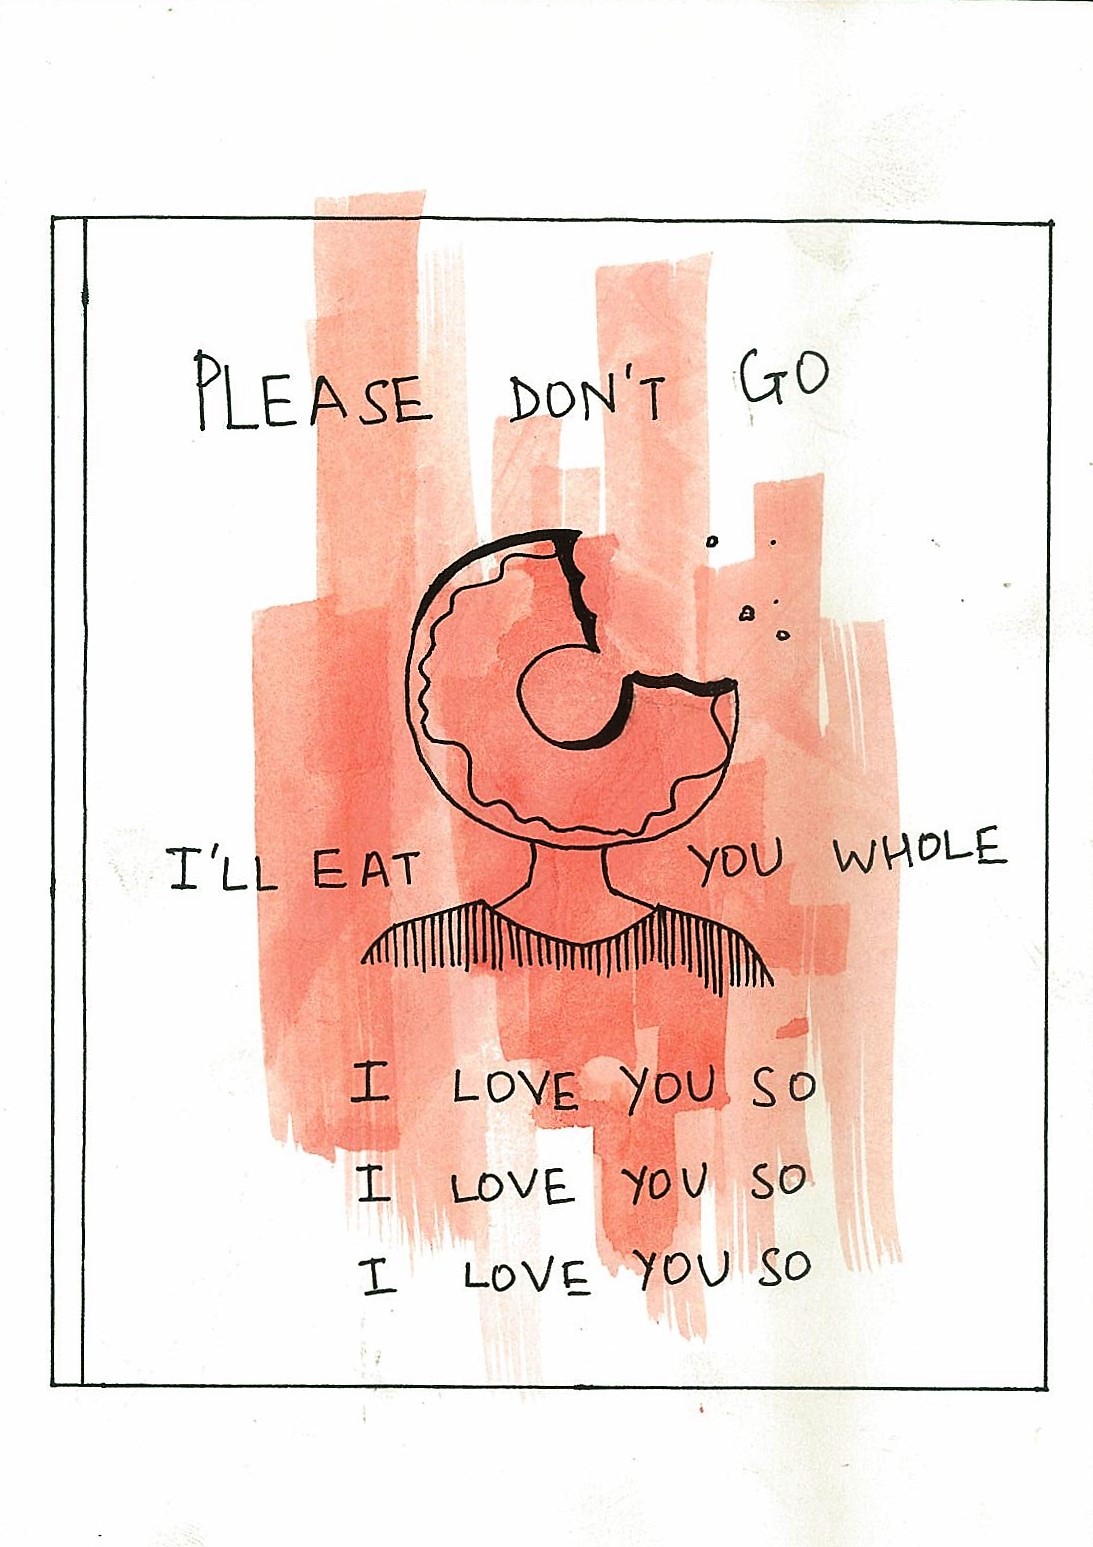 PLEASE DON'T GO
I'LL EAT YOU WHOLE
I LOVE YOU SO
I LOVE YOU SO
I LOVE YOU SO